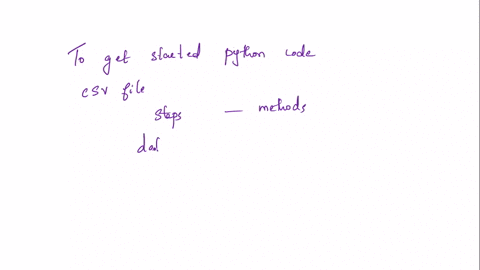 To get started python code
csv file
steps — methods
daf